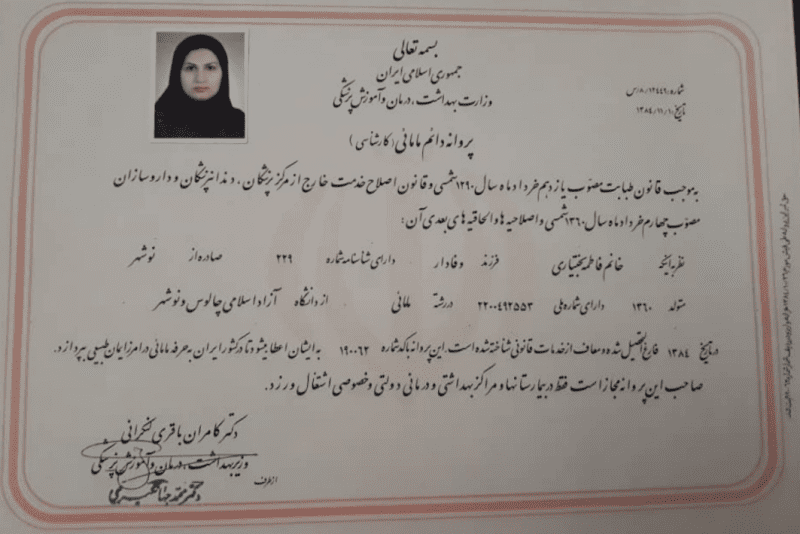 بسمه تعالی
جمهوری اسلامی ایران
وزارت بهداشت، درمان و آموزش پزشکی
شماره: ۸/۱۲۴۴۶/س
تاریخ: ۱۳۸۴/۱۱/۱۰
پروانه دائم مامائی (کارشناسی)
به موجب قانون طبابت مصوب یازدهم خرداد ماه سال ۱۲۹۰ شمسی و قانون اصلاح خدمت خارج از مرکز پزشکان، دندانپزشکان و داروسازان
مصوب چهارم خرداد ماه سال ۱۳۶۰ شمسی و اصلاحیه ها و الحاقیه های بعدی آن:
نظر به اینکه خانم فاطمه بختیاری فرزند وفادار دارای شناسنامه شماره ۲۲۹ صادره از نوشهر
متولد ۱۳۶۰ دارای شماره ملی ۲۲۰۰۴۹۲۵۵۳ در رشته مامائی از دانشگاه آزاد اسلامی چالوس و نوشهر
در تاریخ ۱۳۸۴ فارغ التحصیل شده و معاف از خدمات قانونی شناخته شده است. این پروانه با کد شماره ۱۹۰۰۶۲ به ایشان اعطا میشود تا در کشور ایران به حرفه مامائی در امر زایمان طبیعی بپردازد.
صاحب این پروانه مجاز است فقط در بیمارستانها و مراکز بهداشتی و درمانی دولتی و خصوصی اشتغال ورزد.
دکتر کامران باقری لنکرانی
وزیر بهداشت، درمان و آموزش پزشکی
از طرف